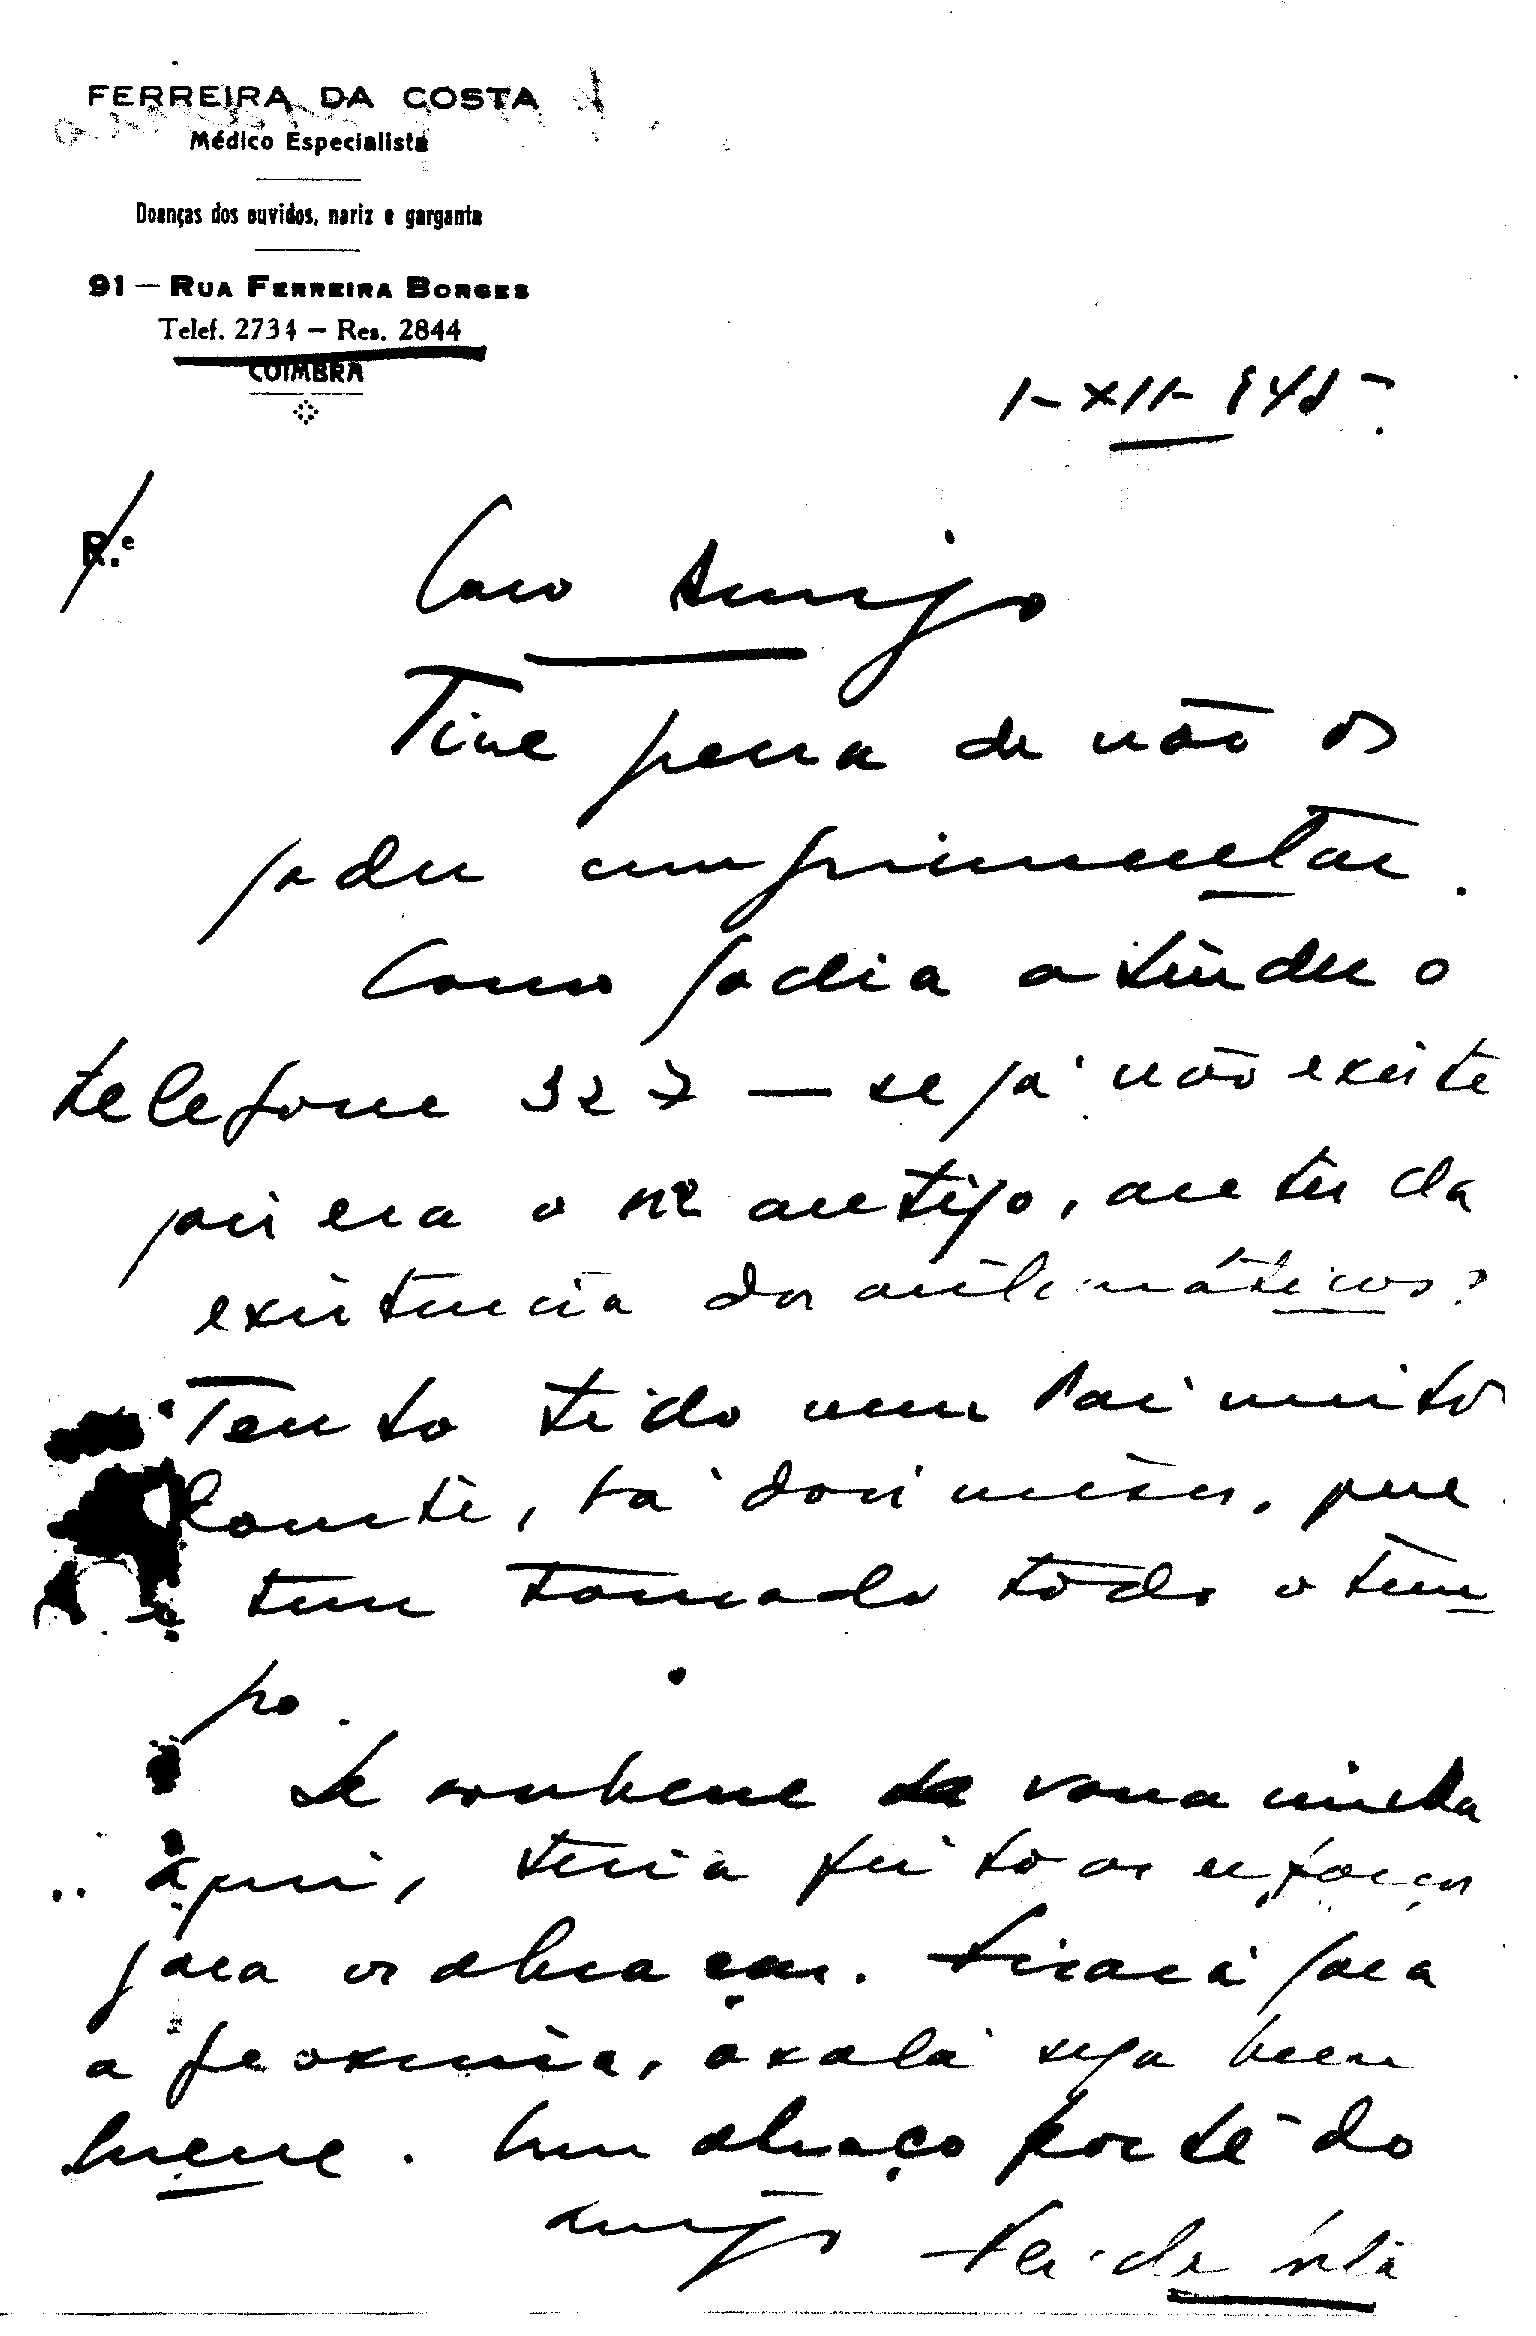 FERREIRA DA COSTA
Médico Especialista
Doenças dos ouvidos, nariz e garganta
91 — RUA FERREIRA BORGES
Telef. 2734 — Res. 2844
COIMBRA
1-XII-945-
R.e
Caro Amigo
Tive pena de não os
poder cumprimentar.
Como podia atender o
telefone 327 — se já não existe
pois era o nº antigo, antes da
existencia dos automáticos?
Tenho tido meu Pai muito
doente, há dois mêses, que
me tem tomado todo o tem
po.
Se soubesse da vossa vinda
aqui, teria feito os esforços
para os abraçar. Ficará para
a proxima, oxalá seja bem
breve. Um abraço forte do
amigo Fer. da Costa